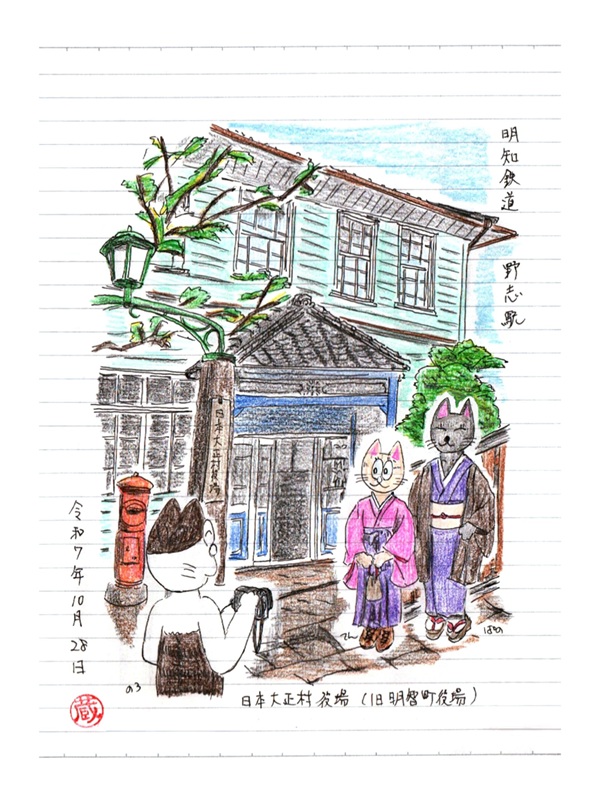 明知鉄道　野志駅
日本大正村役場
令和7年10月28日
のろ
てん
ぱの
蔵
日本大正村役場（旧明智町役場）